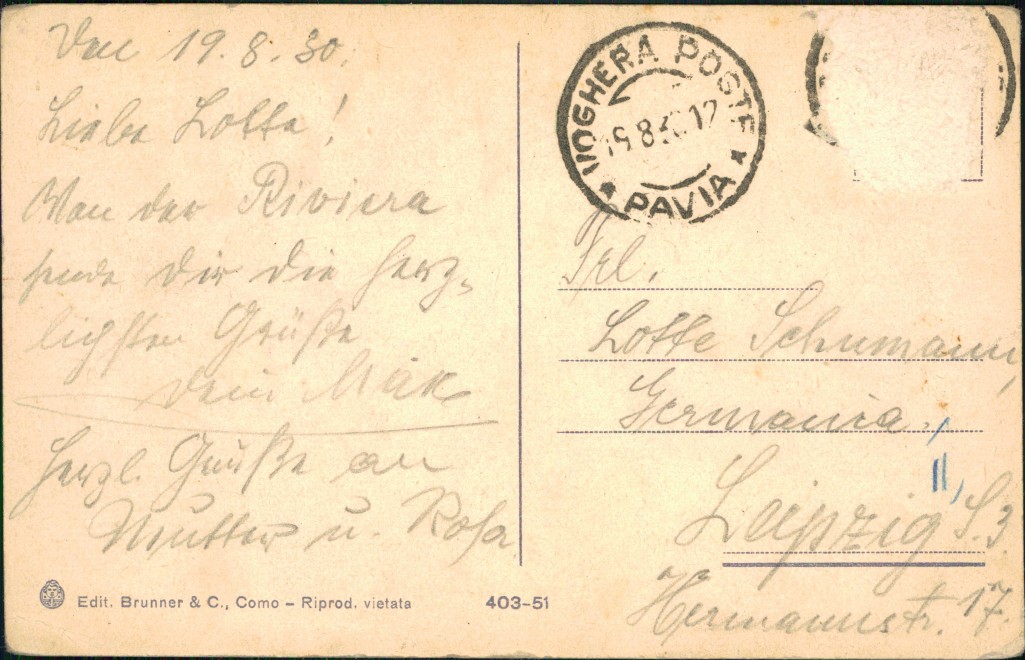 Den 19.8.30.
Liebe Lotte!
Von der Riviera
sende Dir die herz-
lichsten Grüße
Dein Max
Herzl. Grüße an
Mutter u. Rosa.
Edit. Brunner & C., Como – Riprod. vietata
403-51
VOGHERA POSTE
19.8.30.12
* PAVIA *
Frl.
Lotte Schumann,
Germania.
Leipzig S.3.
Hermannstr. 17.